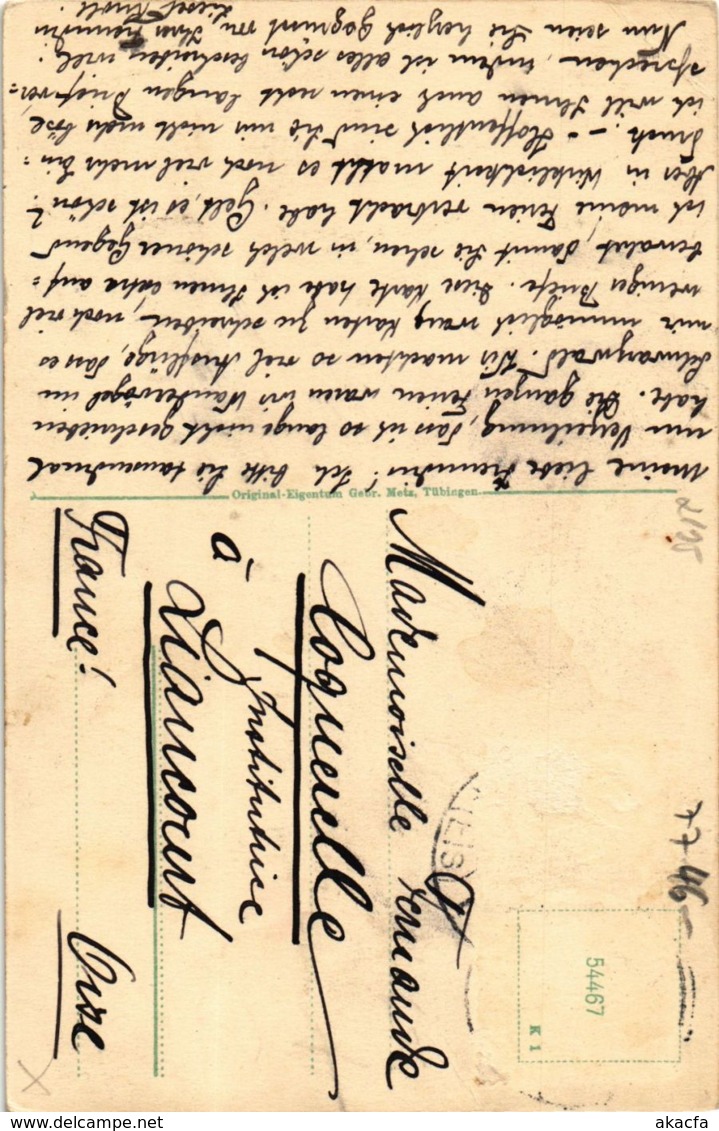 Meine liebe Freundin! Ich bitte Sie tausendmal
um Verzeihung, dass ich so lange nicht geschrieben
habe. Die ganzen Ferien waren wir Wandervögel im
Schwarzwald. Wir machten so viel Ausflüge, dass es
mir unmöglich war, Karten zu schreiben, noch viel
weniger Briefe. Diese Karte habe ich Ihnen extra auf=
bewahrt, damit Sie sehen, in welch schöner Gegend
ich meine Ferien verbracht habe. Gelt, es ist schön?
Aber in Wirklichkeit macht es noch viel mehr Ein=
druck. – Hoffentlich sind Sie mir nicht mehr böse
ich will Ihnen auch einen recht langen Brief ver=
sprechen, indem ich alles schön beschreiben will.
Nun seien Sie herzlich gegrüsst von Ihrer Freundin
Liesel
Original-Eigentum Gebr. Metz, Tübingen.
Mademoiselle Fernande
Coquerelle
Institutrice
à Liancourt
France! Oise
54467
K 1
7746
akacfa